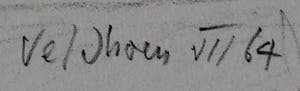 Veldhoven VII 64